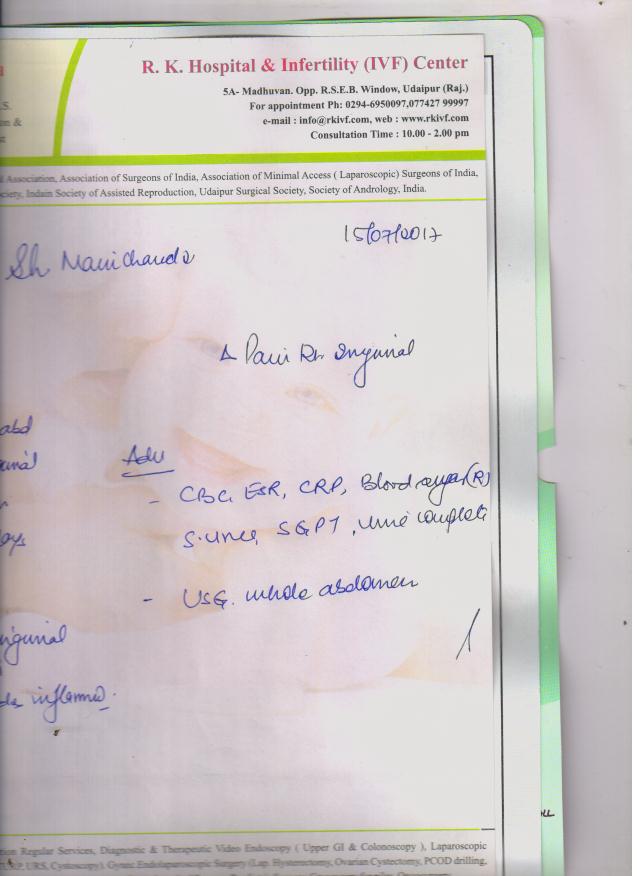 R. K. Hospital & Infertility (IVF) Center
5A- Madhuvan. Opp. R.S.E.B. Window, Udaipur (Raj.)
For appointment Ph: 0294-6950097,077427 99997
e-mail : info@rkivf.com, web : www.rkivf.com
Consultation Time : 10.00 - 2.00 pm
Association, Association of Surgeons of India, Association of Minimal Access ( Laparoscopic) Surgeons of India,
Indain Society of Assisted Reproduction, Udaipur Surgical Society, Society of Andrology, India.
15/07/2017
Sh
Pain Rt. Inguinal
abd
Adv
- CBC, ESR, CRP, Blood sugar(R)
S. urea, SGPT, urine complete
- USG. whole abdomen
inflamed.
Regular Services, Diagnostic & Therapeutic Video Endoscopy ( Upper GI & Colonoscopy ), Laparoscopic
URS, Cystoscopy), Gynec Endolaparoscopic Surgery (Lap. Hysterectomy, Ovarian Cystectomy, PCOD drilling,